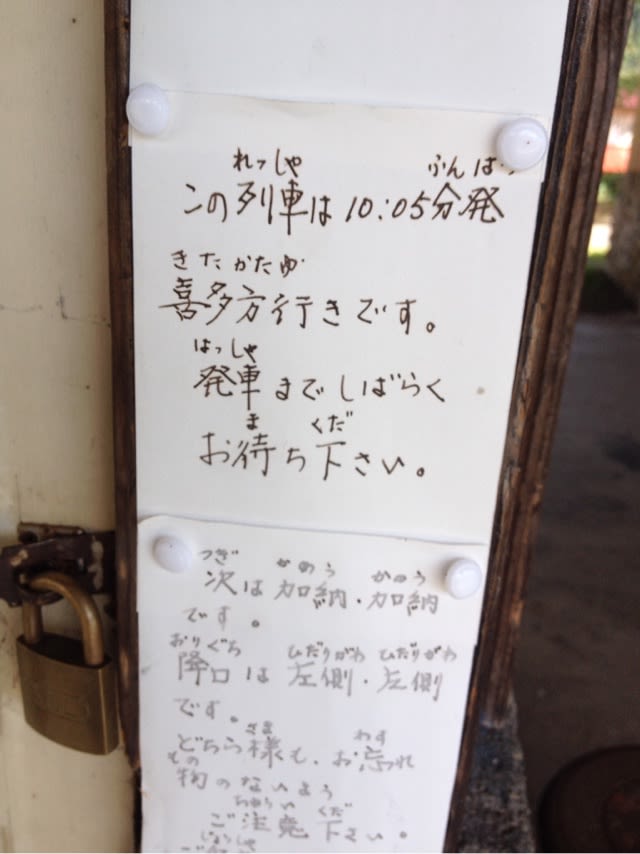 れっしゃ ふんぱつ
この列車は10:05分発
きたかたゆ
喜多方行きです。
はっしゃ
発車までしばらく
ま くだ
お待ち下さい。
つぎ かのう かのう
次は加納・加納
です。
おりぐち ひだりがわ ひだりがわ
降口は左側・左側
です。
さま わす
どちら様も、お忘れ
もの
物のないよう
ちゅうい くだ
ご注意下さい。